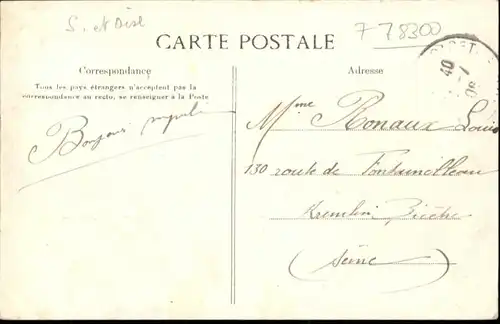 S. et Oise
F 78300
CARTE POSTALE
Correspondance
Tous les pays étrangers n'acceptent pas la
correspondance au recto, se renseigner à la Poste
Adresse
40
08
Bonjour
Mme Ronaux Louis
130 route de Fontainebleau
Kremlin Bicêtre
(Seine)